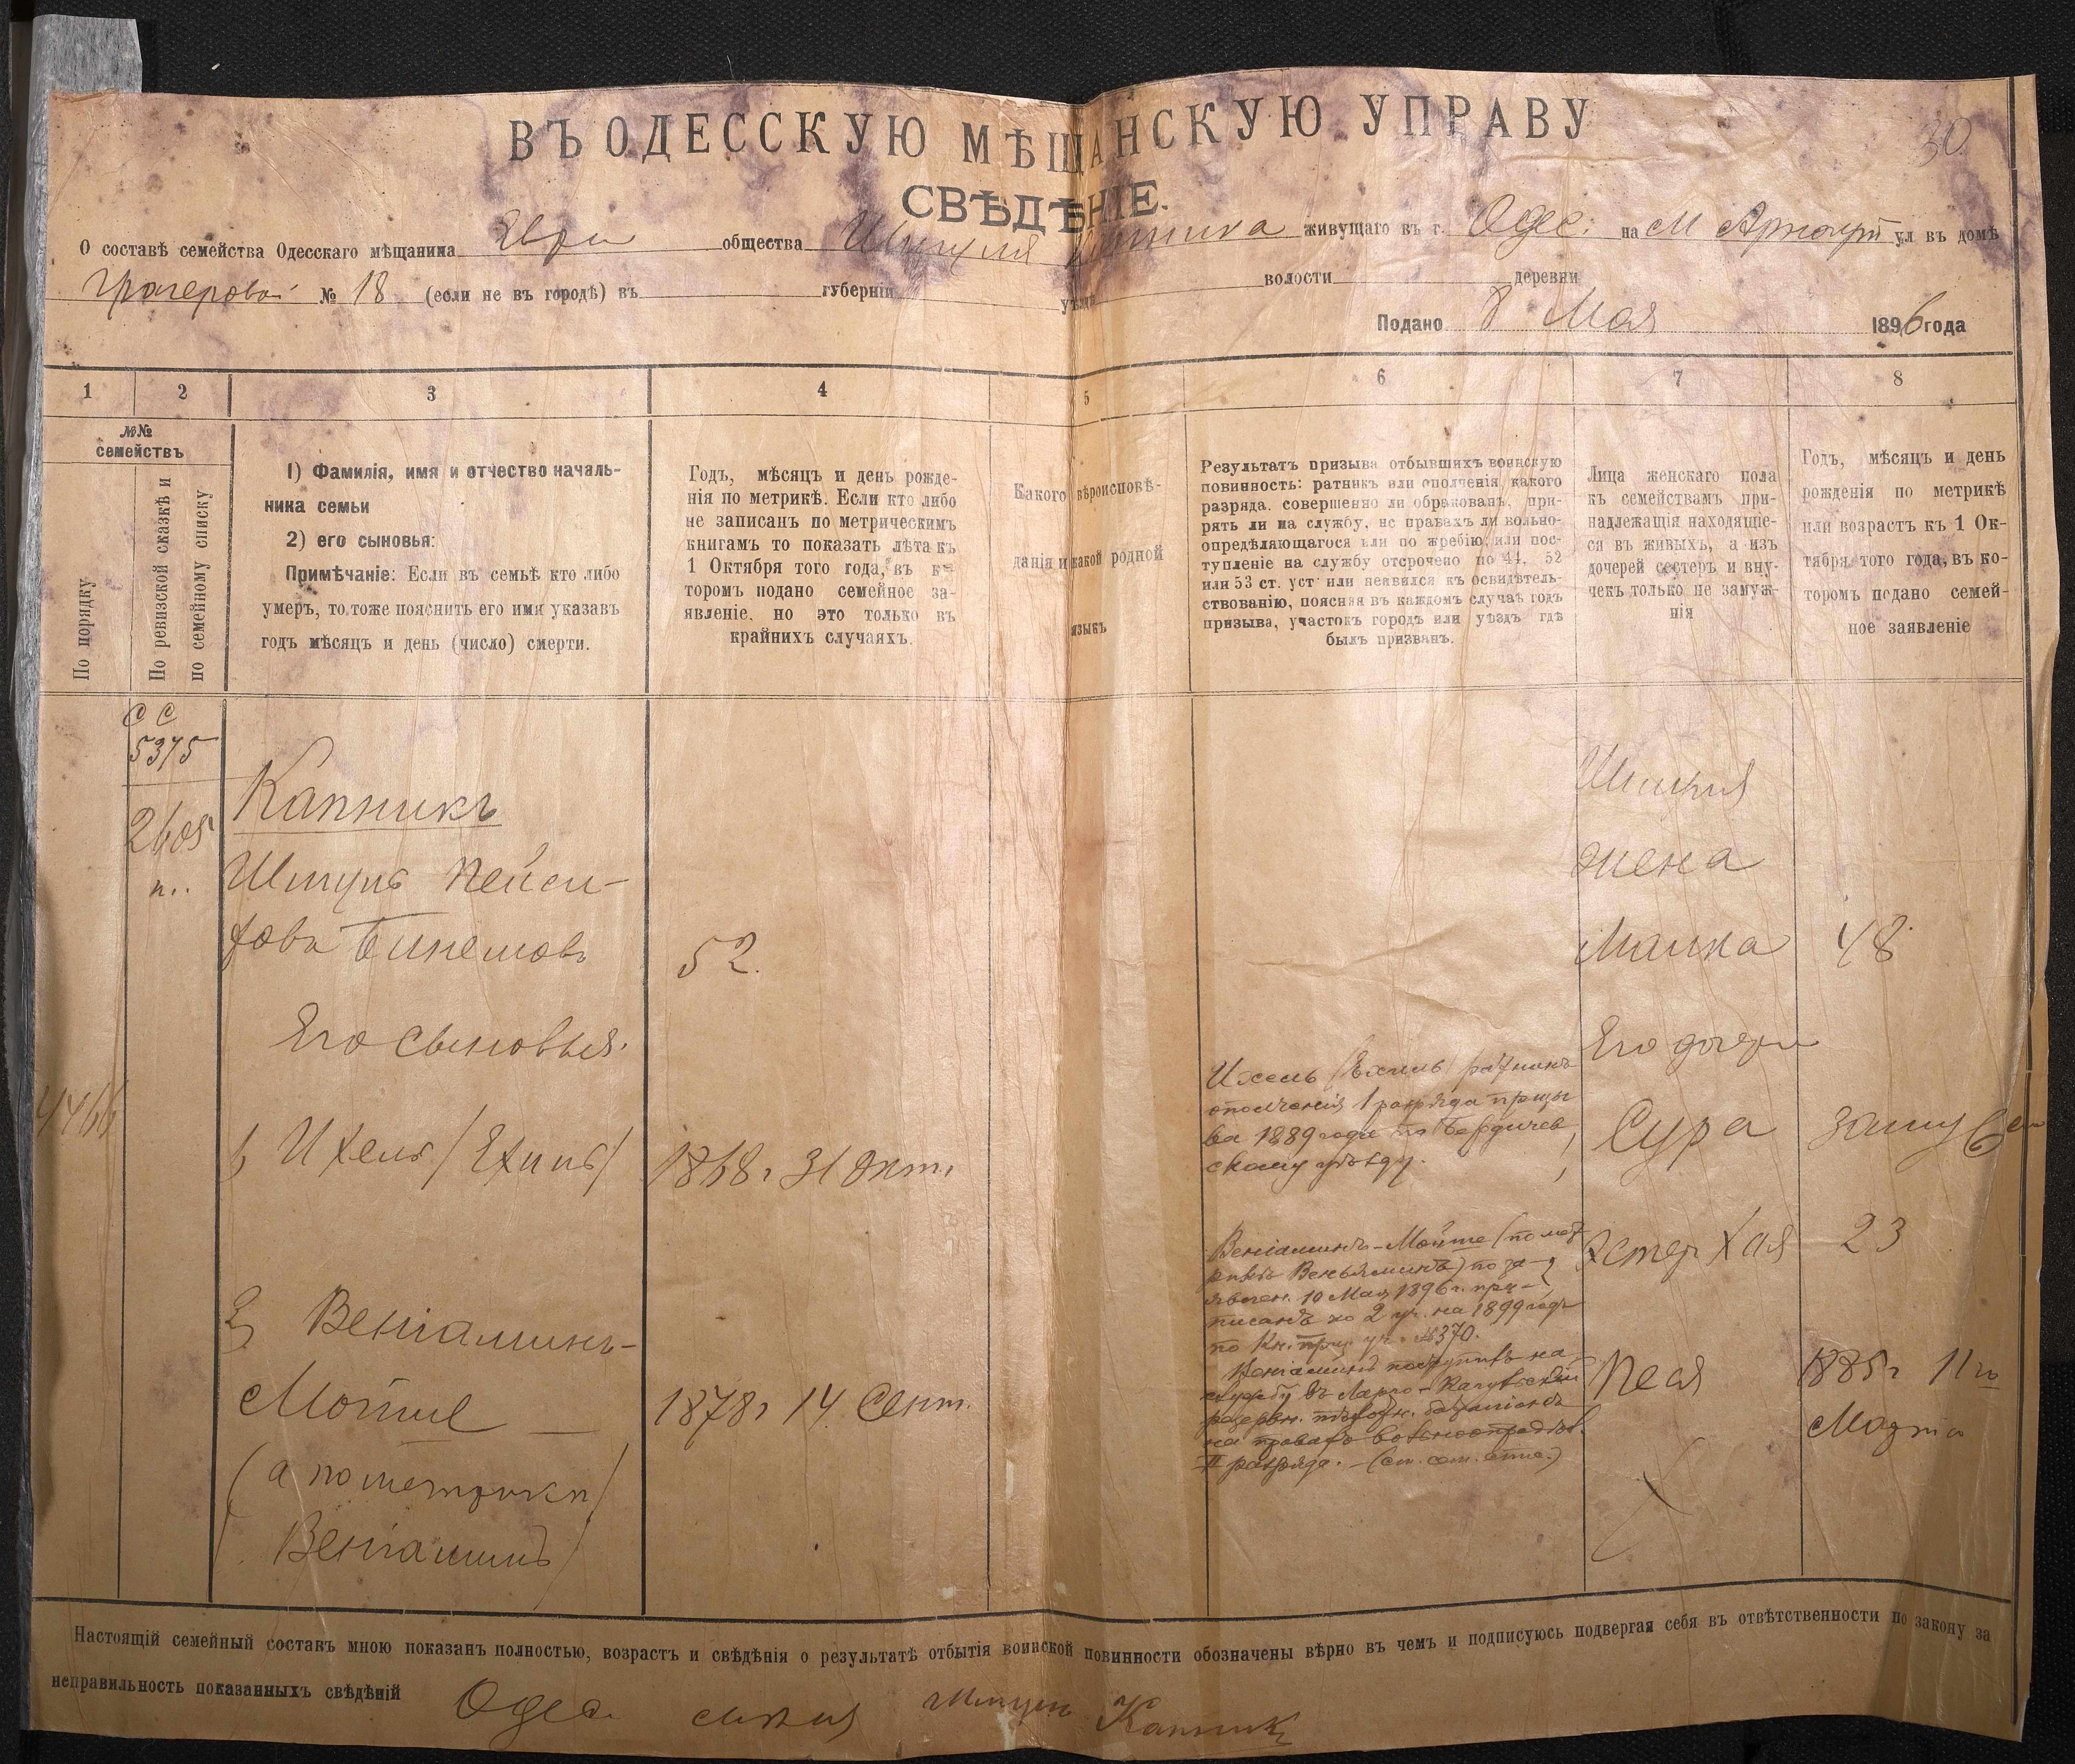 30
ВЪ ОДЕССКУЮ МѢЩАНСКУЮ УПРАВУ
СВѢДѢНІЕ.
О составѣ семейства Одесскаго мѣщанина Евреи общества Шмуля Капника живущаго въ г. Одес: на М Арнаут ул въ домѣ
№ 18 (если не въ городѣ) въ губерніи уѣзда волости деревни
Подано 8 Мая 1896 года
1 2 3 4 5 6 7 8
№№ семействъ
По порядку
По ревизской сказкѣ и по семейному списку
1) Фамилія, имя и отчество началь-
ника семьи
2) его сыновья:
Примѣчаніе: Если въ семьѣ кто либо
умеръ, то тоже пояснить его имя указавъ
годъ мѣсяцъ и день (число) смерти.
Годъ, мѣсяцъ и день рожде-
нія по метрикѣ. Если кто либо
не записанъ по метрическимъ
книгамъ то показать лѣта къ
1 Октября того года, въ ко-
торомъ подано семейное за-
явленіе, но это только въ
крайнихъ случаяхъ.
Какого вѣроисповѣ-
данія и какой родной
языкъ
Результатъ призыва отбывшихъ воинскую
повинность: ратникъ или ополченія, какого
разряда, совершенно ли обракованъ, при-
нятъ ли на службу, не правахъ ли вольно-
опредѣляющагося или по жребію, или пос-
тупленіе на службу отсрочено по 44, 52
или 53 ст. уст. или неявился къ освидѣтель-
ствованію, поясняя въ каждомъ случаѣ годъ
призыва, участокъ городъ или уѣздъ гдѣ
былъ призванъ.
Лица женскаго пола
къ семействамъ при-
надлежащія находящіе-
ся въ живыхъ, а изъ
дочерей сестеръ и вну-
чекъ только не замуж-
нія
Годъ, мѣсяцъ и день
рожденія по метрикѣ
или возрастъ къ 1 Ок-
тября того года, въ ко-
торомъ подано семей-
ное заявленіе
С С
5375
2605
п..
Капникъ
Шмуль Пейси-
ховъ Бинемовъ
52.
Шмуля
жена
Малка 48
Его сыновья.
Его дочери
4466
1) Ихель / Ехиль /
1868 г 31 Окт.
Ихель (Ехиль) ратникъ
ополченія 1 разряда призы
ва 1889 года по Бердичев
скому уѣзду.
Сура замуж
Эстер Хая 23
2) Веніаминъ-
Мотые
(а по метрики)
(Веніаминъ)
1878 г 14 Сент.
Веніаминъ-Мойше (по мет
рикѣ Веньяминъ) по за-
явлен. 10 Мая 1896 г. при-
писанъ ко 2 уч. на 1899 годъ
по Кн. приз. уч. №370.
Веніаминъ поступилъ на
службу въ Ларго-Кагульскій
резервн. пѣхотн. баталіонъ
на правахъ вольноопредѣл.
II разряда. - (см. сем. )
Песя 1885 г 11 го
Марта
Настоящій семейный составъ мною показанъ полностью, возрастъ и свѣдѣнія о результатѣ отбытія воинской повинности обозначены вѣрно въ чемъ и подписуюсь подвергая себя въ отвѣтственности по закону за
неправильность показанныхъ свѣдѣній Одес. Шмуль Капникъ